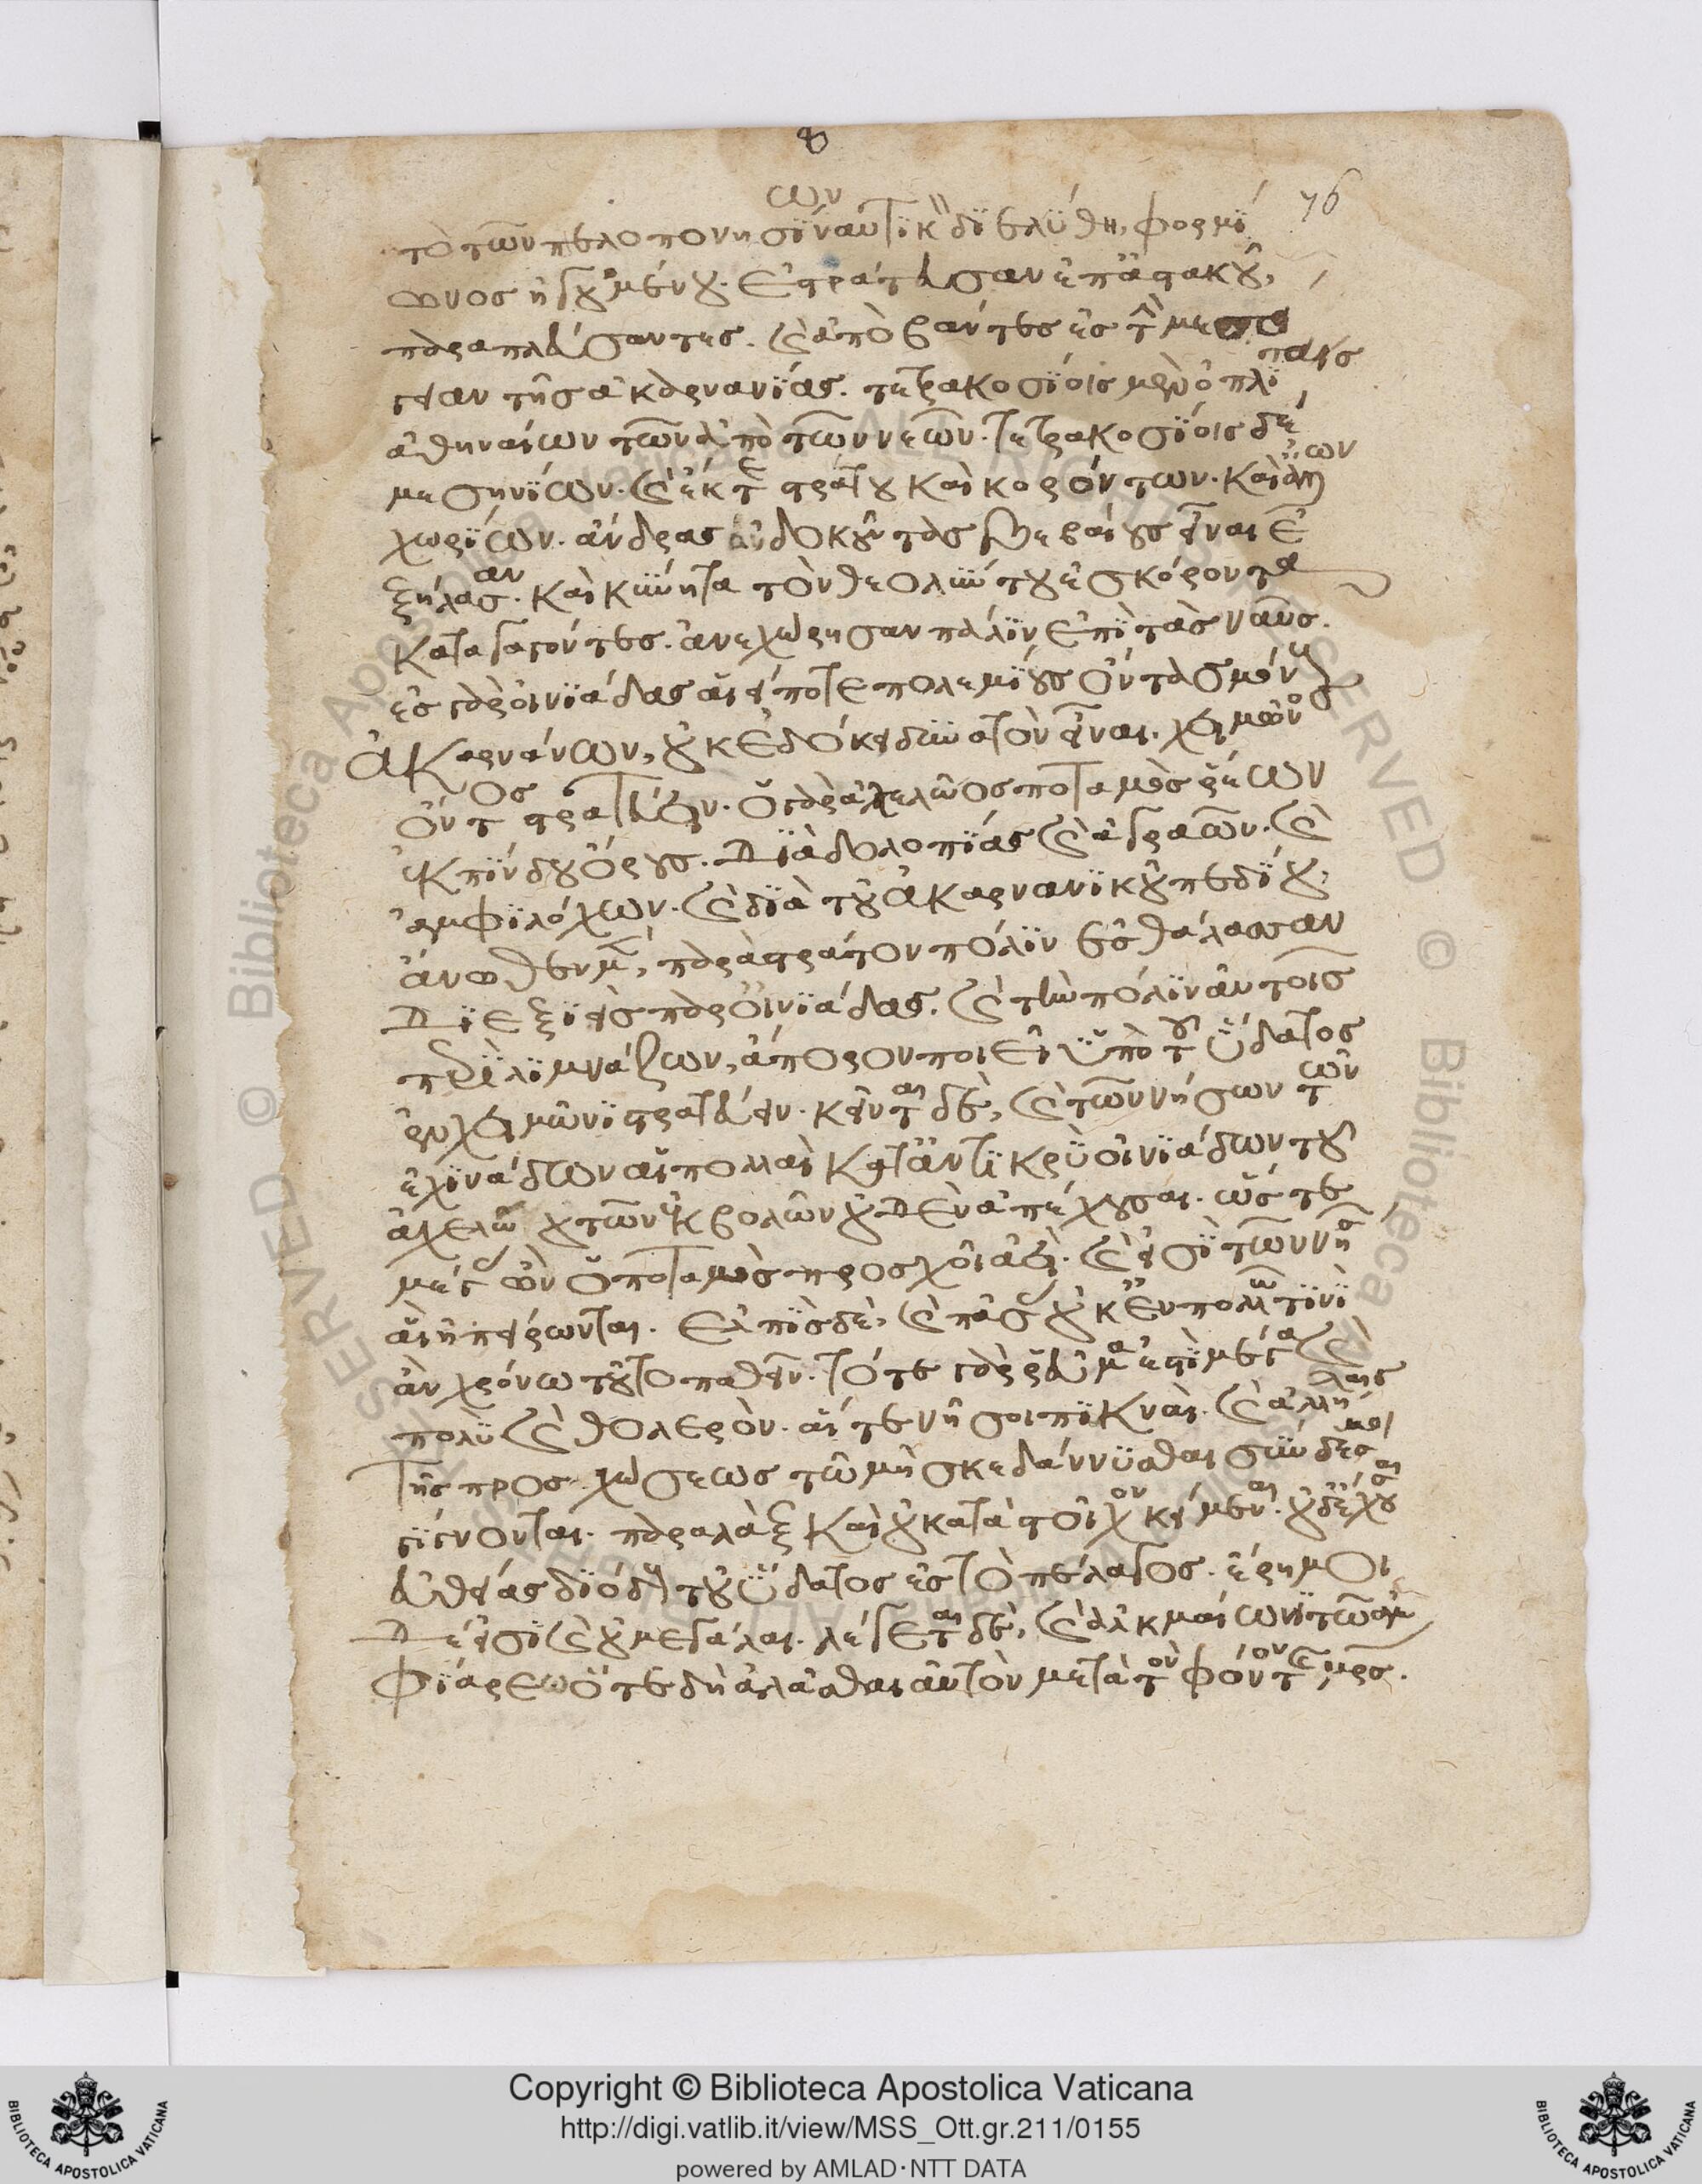 8
76
τὸ τῶν πελοπονησίων ναυτικὸν διελύθη, φορμί
ωνος ἡγουμένου. ἐστράτευσαν ἐπ' ἀστακοῦ,
παραπλεύσαντες. καὶ ἀποβάντες ἐς τὴν μεσό
γειαν τῆς ἀκαρνανίας. τετρακοσίοις μὲν ὁπλίταις
ἀθηναίων τῶν ἀπὸ τῶν νεῶν. τετρακοσίοις δὲ
μεσηνίων. καὶ ἔκ τε στράτου καὶ κορόντων. καὶ ἄλλων
χωρίων. ἄνδρας οὐ δοκοῦντας βεβαίους εἶναι ἐ
ξήλασαν. καὶ κύνητα τὸν θεολύτου ἐς κόροντα
καταγαγόντες. ἀνεχώρησαν πάλιν ἐπὶ τὰς ναῦς.
ἐς γὰρ οἰνιάδας αἰεί ποτε πολεμίους ὄντας μόνους
Ἀκαρνάνων, οὐκ ἐδόκει δυνατὸν εἶναι. χειμῶνος
ὄντος στρατεύειν. ὁ γὰρ ἀχελῶος ποταμὸς ῥέων
ἐκ πίνδου ὄρους. διὰ δολοπίας καὶ ἀγραῶν. καὶ
ἀμφιλόχων. καὶ διὰ τοῦ ἀκαρνανικοῦ πεδίου,
ἄνωθεν μὲν, παρὰ στράτον πόλιν ἐς θάλασσαν
διεξιεὶς παρ' οἰνιάδας. καὶ τὴν πόλιν αὐτοῖς
περιλιμνάζων, ἄπορον ποιεῖ ὑπὸ τοῦ ὕδατος
ἐν χειμῶνι στρατεύειν. κεῖνται δὲ, καὶ τῶν νήσων τῶν
ἐχινάδων αἱ πολλαὶ καταντικρὺ οἰνιάδων τοῦ
ἀχελώου τῶν ἐκβολῶν οὐδὲν ἀπέχουσαι. ὥστε
μέγας ὢν ὁ ποταμὸς προσχοῖ ἀεὶ. καὶ εἰσὶ τῶν νήσων
αἳ ἠπείρωνται. ἐλπὶς δὲ, καὶ πάσας οὐκ ἐν πολλῷ τινὶ
ἂν χρόνω τοῦτο παθεῖν. τό τε γὰρ ῥεῦμα ἐστὶ μέγα καὶ
πολὺ καὶ θολερὸν. αἵ τε νῆσοι πικναὶ. καὶ ἀλλήλαις
τῆς προσχώσεως τῶ μὴ σκεδάννυσθαι σύνδεσμοι
γίγνονται. παραλὰξ καὶ οὐ κατὰ στοῖχον κείμεναι. οὐδ' ἔχουσαι
εὐθείας διόδους τοῦ ὕδατος ἐς τὸ πέλαγος. ἔρημοι
δ' εἰσὶ καὶ οὐ μεγάλαι. λέγεται δὲ, καὶ ἀλκμαίωνι τῶ ἀμ
φιάρεω ὅτε δὴ ἀλᾶσθαι αὐτὸν μετὰ τὸν φόνον τῆς μητρός.
Copyright © Biblioteca Apostolica Vaticana
http://digi.vatlib.it/view/MSS_Ott.gr.211/0155
powered by AMLAD·NTT DATA